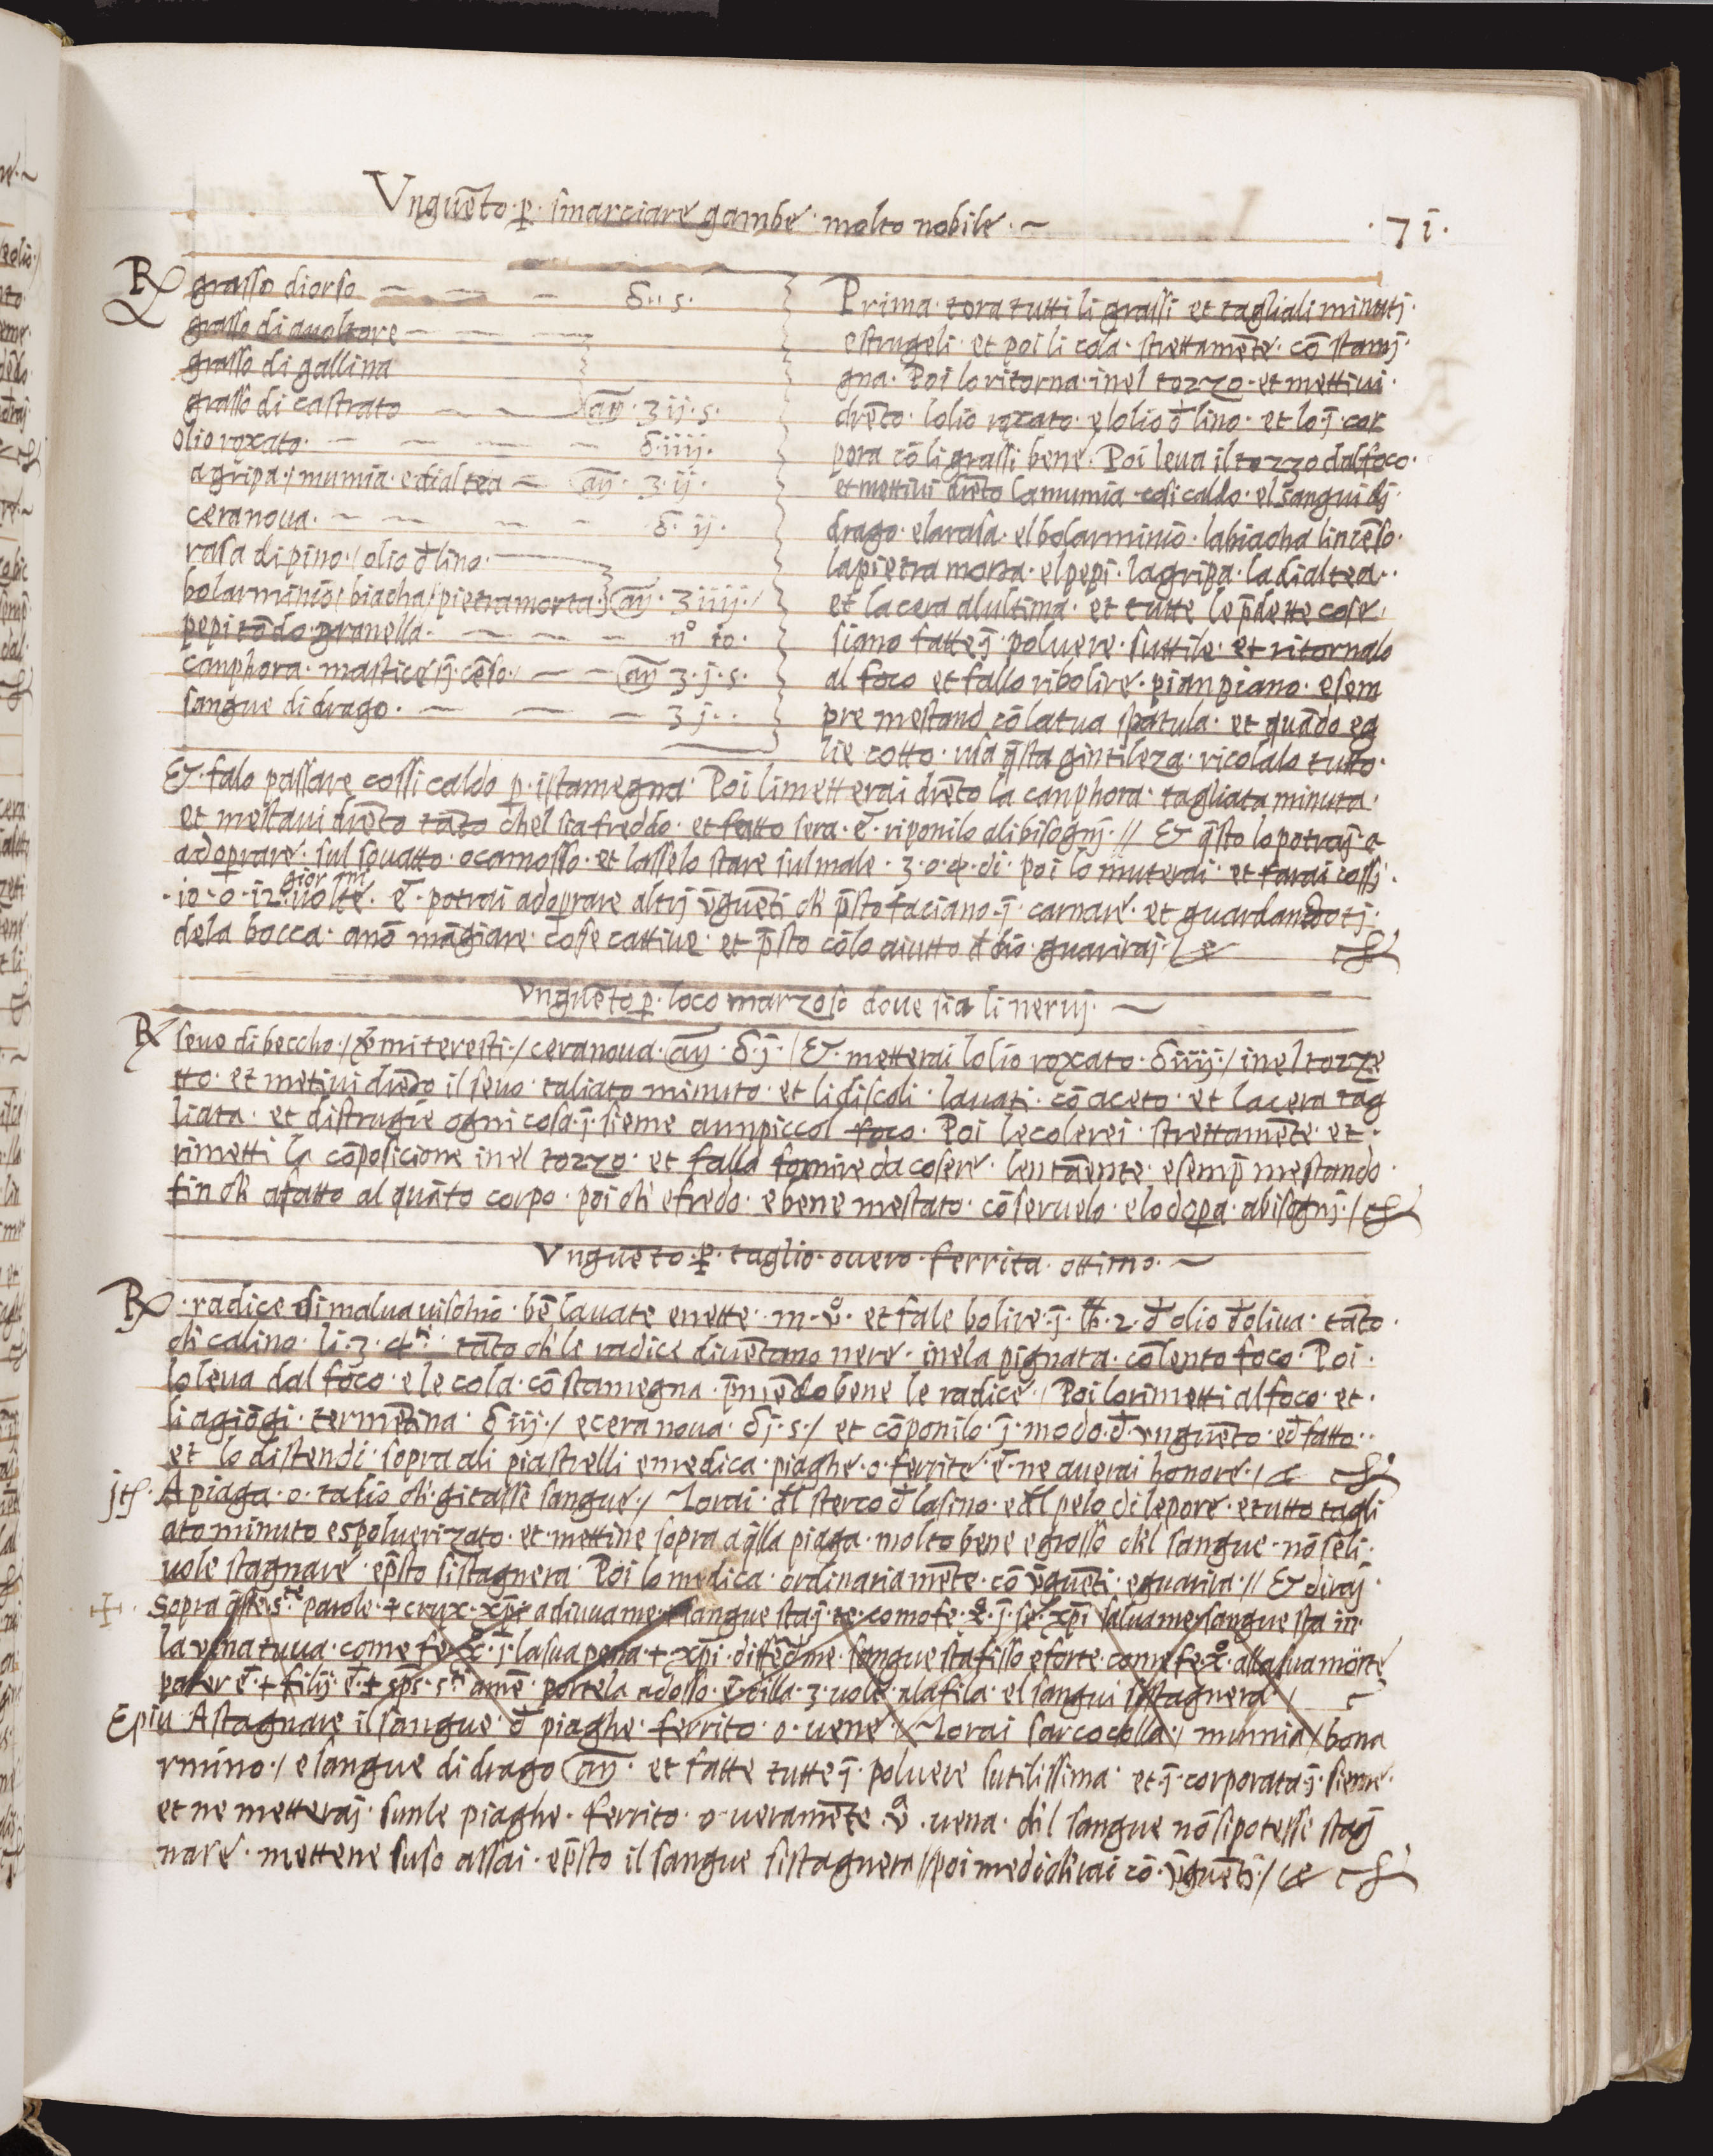 Vnguēto · p · smarciare gambe · molto nobile · ~
· 71 ·
Rx grasso diorso — — — δ · s ·
grasso di auoltore — — —
grasso di gallina
grasso di castrato — — añ · ʒ ij · s ·
olio roxato · — — — — δ · iiij ·
agripa · / mumia · e dialtea — añ · ʒ · ij ·
cera noua · — — — — δ · ij ·
rasa di pino · / olio đ lino ·
bolarminio / biacha / pietra morta · añ · ʒ iiij · /
pepi tōdo granella · — — — nº 10 ·
canphora · mastice / ĵ cēso · / — — añ ʒ · j · s ·
sangue di drago · — — — ʒ j ·
Prima · tora tutti li grassi et tagliali minutj ·
e strugeli · et poi li cola · strettamēte · cō stamj ·
gna · Poi lo ritorna · inel tozzo · et mettiui ·
drēto · lolio roxato · e lolio đ lino · et lo ĵ · cor
pora cō li grassi bene · Poi leua il tozzo dal foco ·
et mettiui drēto la mumia · cosi caldo · el sangui dj ·
drago · e la rasa · el bolarminio · la biacha lincēso ·
la pietra morta · el pepi · lagripa · la dialtea ·
et la cera alultima · et tutte le p̄dette cose ·
siano fatte ĵ · poluere · suttile · et ritornalo
al foco et fallo ribolire · pian piano · e sem
pre mestand cō la tua spatula · et quādo eg
lie cotto · usa q̄sta gintileza · ricolalo tutto ·
Et · falo passare cossi caldo p · istamegna · Poi li metterai drēto la canphora · tagliata minuta ·
et mestaui drēto tāto chel sia freddo · et fatto sera · ē · riponilo alibisognj · // Et q̄sto lo potraj · a
adoprare · sul souatto · o camosso · et lasselo stare sul male · 3 · o · 4 · di · poi lo muterai · et farai cossi ·
giornj
· 10 · o · 12 · uolte · ē · potrai adoprare altrj ṽguēti ch̄ p̄sto faciano · ĵ · carnare · et guardandotj ·
dela bocca · a nō māgiare · cose cattiue · et p̄sto cō lo aiutto đ dio guariraj · /
Vnguēto p · loco marzoso doue sia li neruj · ~
Rx seuo di beccho · / ve̅mi teresti · / cera noua · añ · δ · j · / Et · metterai lolio roxato · δ iiij · / inel tozze
tto · et metiui drēto il seuo · taliato minuto · et li discoli · lauati · cō aceto · et la cera tag
liata · et distrugie ogni cosa · ĵ · sieme a un piccol foco · Poi le colerei · strettamēte · et ·
rimetti la cōposicione inel tozzo · et falla fornire da cosere · lentāente · e semp̄ mestando ·
fin ch̄ a fatto al quāto corpo · poi ch̄ e fredo · e bene mestato · cōseruelo · e lo dopa · abisognj · /
Vnguēto · p · taglio · ouero · ferrita · ottimo · ~
Rx · radice di malua uischio · bē lauate e nette · m · v̊ · et fale bolire · ĵ · lb · 2 · đ olio đ oliua · tāto ·
ch̄ calino · li · 3 · 4ti · tāto ch̄ le radice diuētano nere · inela pignata · cō lento foco · Poi ·
lo leua dal foco · e le cola · cō stamegna · p̄mēdo bene le radice · / Poi lo rimetti al foco · et ·
li agiōgi · termētina · δ iij · / e cera noua · δ j · s · / et cōponilo · ĵ · modo · đ · vnguēto · ed fatto ·
et lo distendi · sopra ali piastrelli e medica · piaghe · o · ferrite · ē · ne auerai honore · /
jtſ · A piaga · o · talio ch̄ · gitasse sangue · / Torai · đl sterco đ lasino · e đl pelo di lepore · e tutto tagli
ato minuto e spoluerizato · et mettine sopra a q̄lla piaga · molto bene e grosso ch̄l sangue · nō se li ·
uole stagnare · e p̄sto si stagnera · Poi lo medica · ordinariamēte · cō ṽguēti · e guarira · // Et diraj ·
✠ · sopra q̄ste · s.te parole · + crux · xp̄i · adiuuame · + sangue staj · te · como fe · x̊ · ĵ · se · xp̄i saluame / sangue sta in ·
la vena tuua · come fe · x̊ · ĵ · la sua pena · + · xp̄i · diffēdme · sangue sta fisso e forte · come fe · x̊ · alla sua morte
pater ē · + filij · ē · + sp̄s · s.ti amē · portela adosso · ē dilla · 3 · uolte · ala fila · el sangui si stagnera · /
E piu A stagnare il sangue · đ piaghe · ferrito · o · uene · / Torai sarcocolla · / mumia / bona
rmino · / e sangue di drago añ · et fatte tutte ĵ · poluere sutilissima · et ĵ · corporata ĵ · sieme ·
et ne metteraj · sun le piaghe · ferrito · o · ueramēte · v̊ · uena · ch̄l sangue nō si potesse stag
nare · mettene suso assai · e p̄sto il sangue si stagnera // poi medich̄rai cō · ṽguētj · /